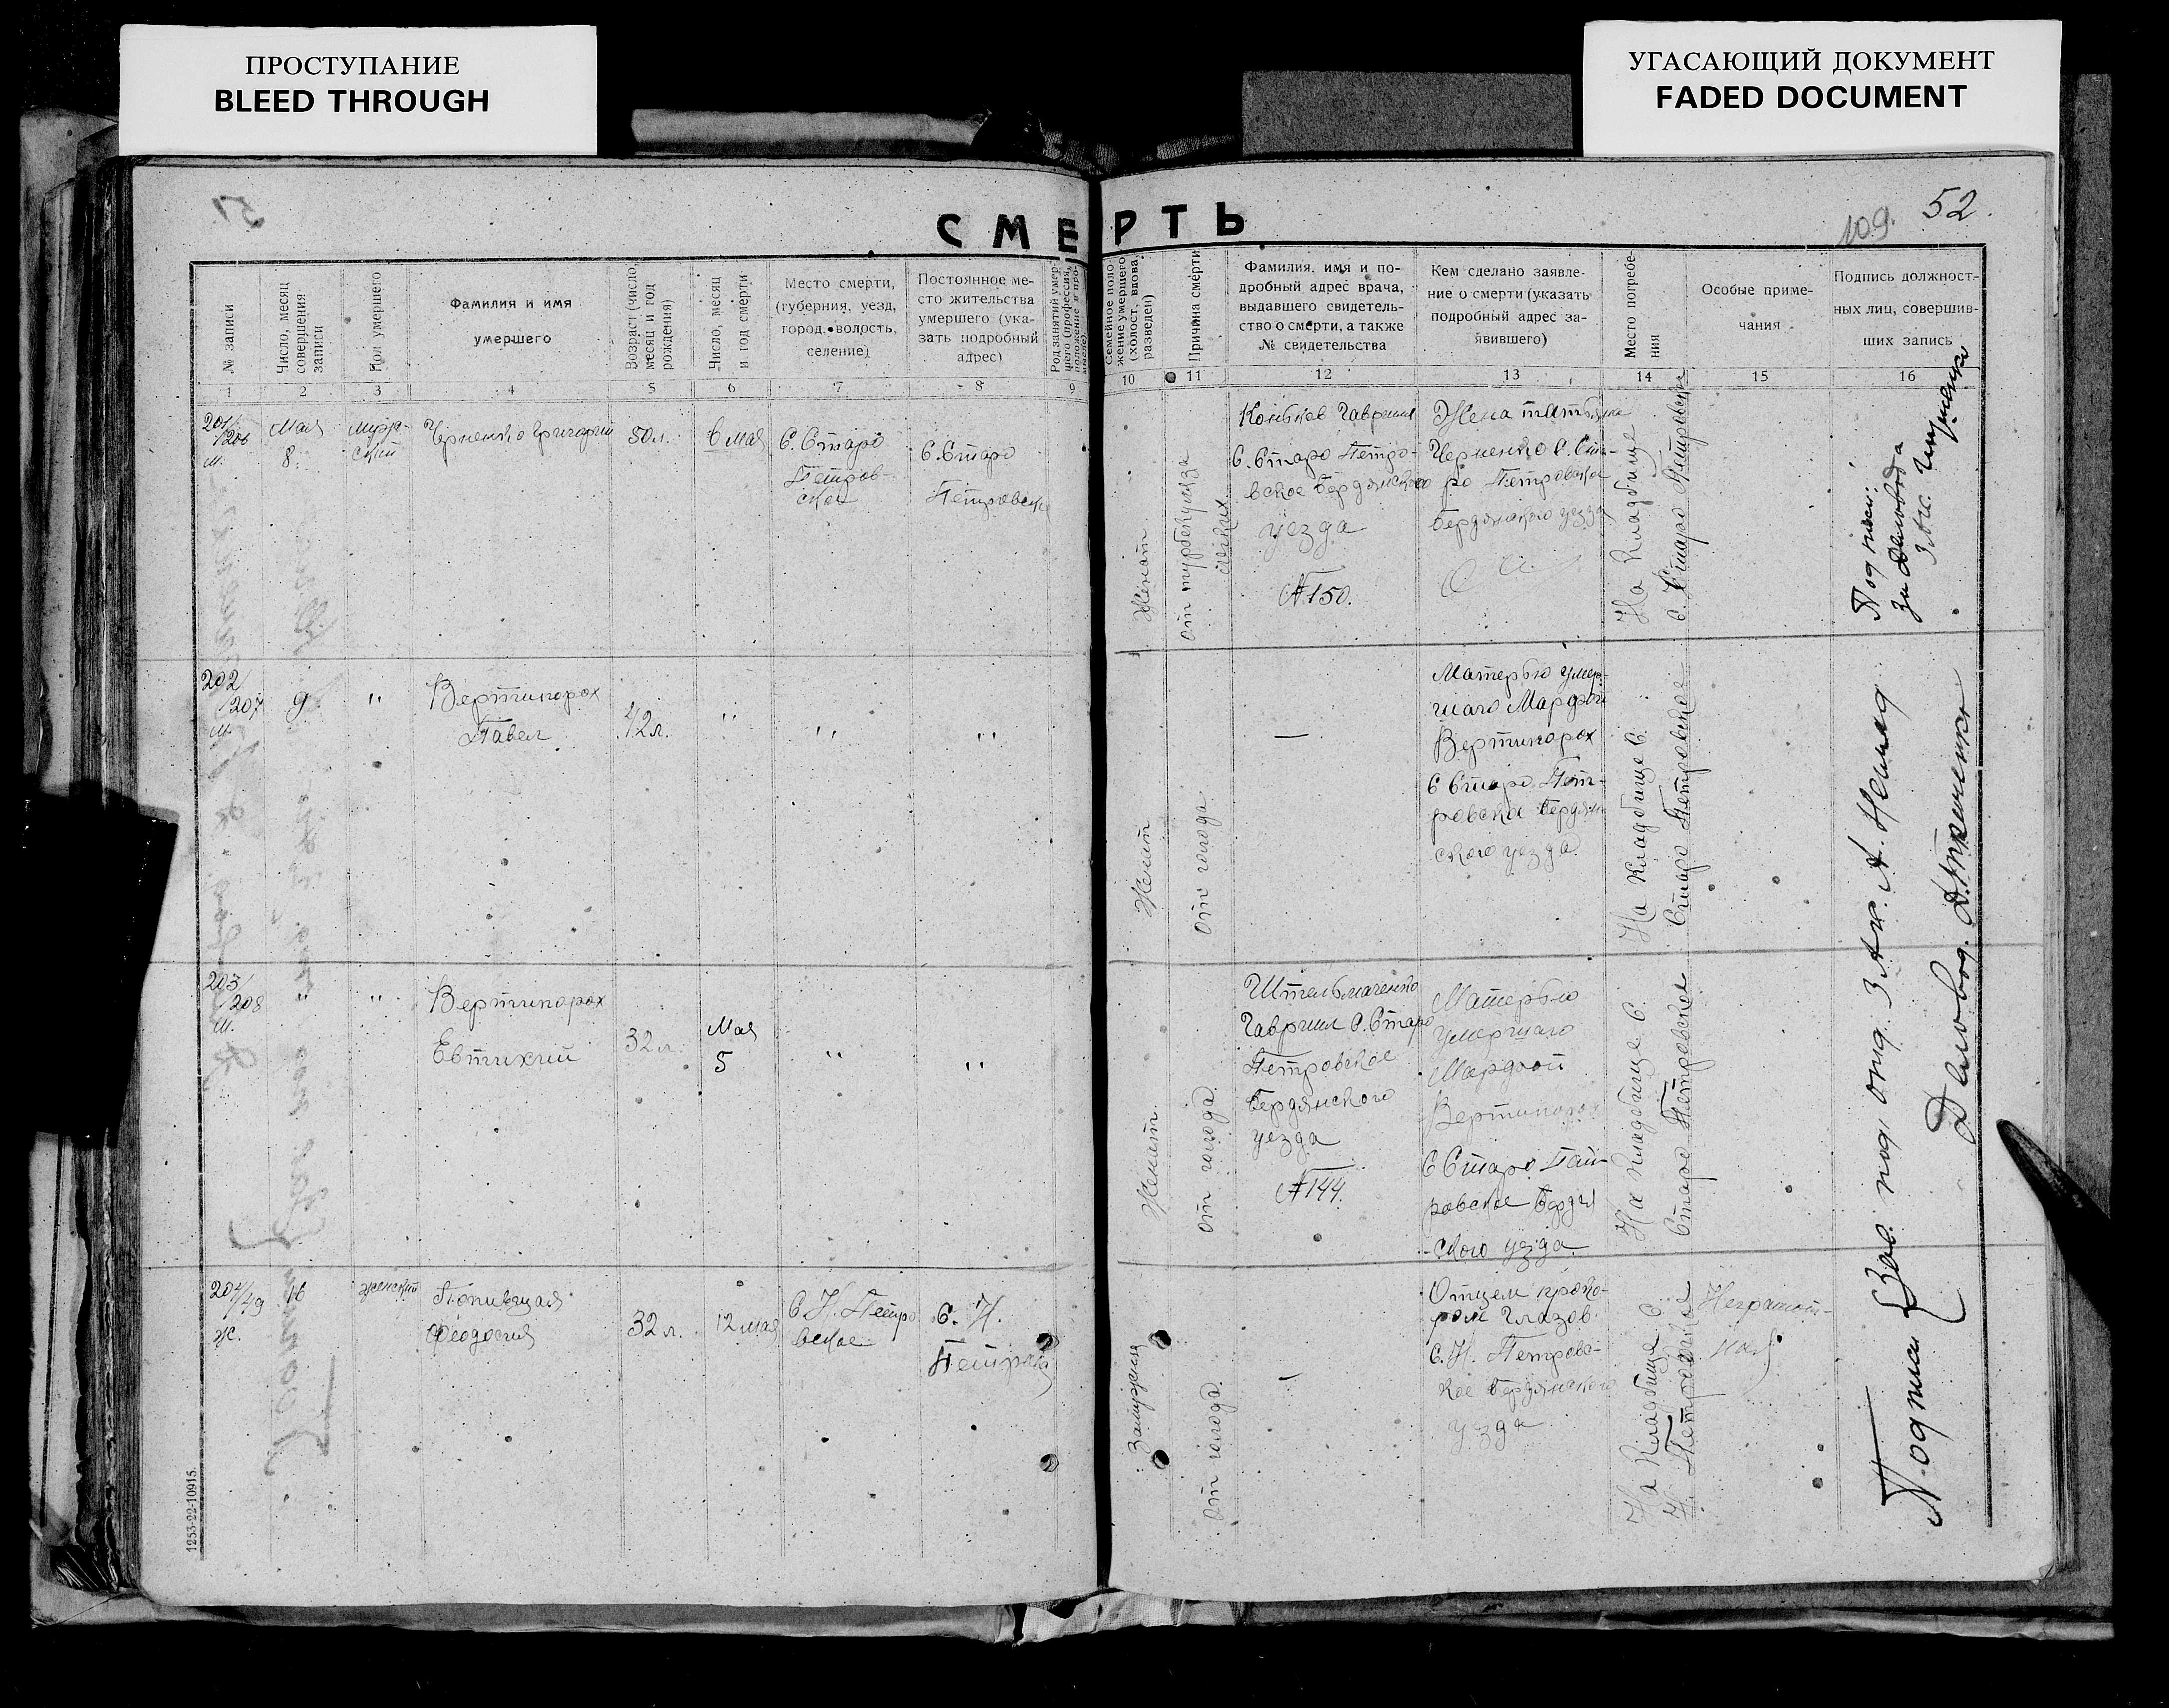 ПРОСТУПАНИЕ
BLEED THROUGH
УГАСАЮЩИЙ ДОКУМЕНТ
FADED DOCUMENT
51
109.
52.
СМЕРТЬ
№ записи
Число, месяц
совершения
записи
Пол умершего
Фамилия и имя
умершего
Возраст (число,
месяц и год
рождения)
Число, месяц
и год смерти
Место смерти,
(губерния, уезд,
город, волость,
селение)
Постоянное ме-
сто жительства
умершего (ука-
зать подробный
адрес)
Род занятий умер-
шего (профессия,
положение в про-
мысле)
Семейное поло-
жение умершего
(холост, вдова,
разведен)
Причина смерти
Фамилия, имя и по-
дробный адрес врача,
выдавшего свидетель-
ство о смерти, а также
№ свидетельства
Кем сделано заявле-
ние о смерти (указать
подробный адрес за-
явившего)
Место погребе-
ния
Особые приме-
чания
Подпись должност-
ных лиц, совершив-
ших запись
1 2 3 4 5 6 7 8 9 10 11 12 13 14 15 16
201/
206
м.
Мая
8
мужс-
ский
Черненко Григорий
50 л.
6 Мая
С. Старо
Петров-
ское
С. Старо
Петровское
Женат
от
Гавриил
С. Старо Петро-
вское Бердянского
уезда
№ 150.
Жена Татьяна
Черненко С. Ста-
ро Петровское
Бердянского уезда
На Кладбище
С. Старо Петровское
202/
207
м.
9
"
Вертипорох
Павел
42 л.
"
"
"
Женат
От голода
—
Матерью умер-
шаго Марфой
Вертипорох
С Старо Пет-
ровское Бердян-
ского уезда.
На Кладбище С.
Старо Петровское
203/
208
м.
"
"
Вертипорох
Евтихий
32 л.
Мая
5
"
"
Женат.
От голода.
Штельмаченко
Гавриил С. Старо
Петровское
Бердянского
уезда
№ 144.
Матерью
умершаго
Марфой
Вертипорох
С Старо Пет-
ровское Бердян
-ского уезда
На Кладбище С.
Старо Петровское
204/49
ж.
16
женский
Феодосия
32 л.
12 мая
С. Н. Петро
вское
С. Н.
Петровск
Замужняя
От голода.
—
Отцем
Глазов
С. Н. Петровс-
кое Бердянского
уезда
На Кладбище С.
Н. Петровское
Неграмот-
ная
Подписи
Зав. под. отд. ЗАГС.
Деловод.
1253-22-10915.